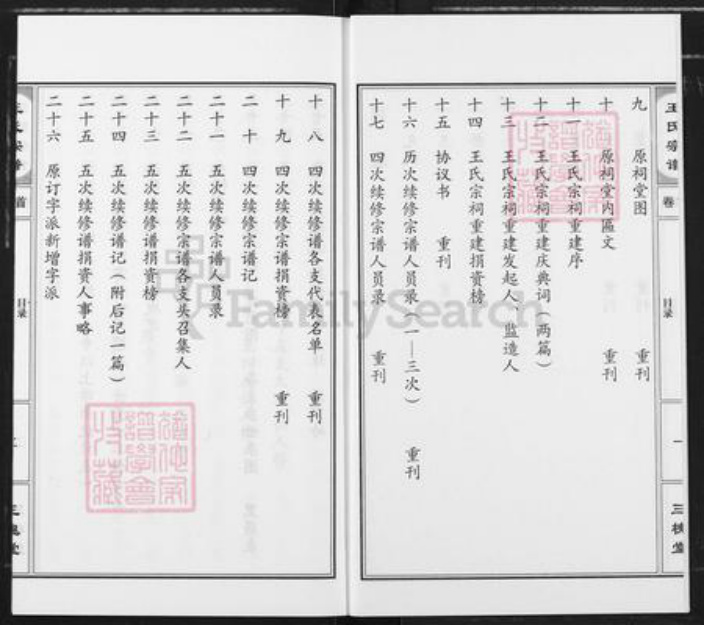 王氏宗谱
卷
目录
一
三槐堂
九 原祠堂图 重刊
十 原祠堂内匾文 重刊
十一 王氏宗祠重建序
十二 王氏宗祠重建庆典词（两篇）
十三 王氏宗祠重建发起人、监造人
十四 王氏宗祠重建捐资榜
十五 协议书 重刊
十六 历次续修宗谱人员录（一—三次） 重刊
十七 四次续修宗谱人员录 重刊
十八 四次续修谱各支代表名单 重刊
十九 四次续修宗谱捐资榜 重刊
二十 四次续修宗谱记
二十一 五次续修宗谱人员录
二十二 五次续修宗谱各支头召集人
二十三 五次续修谱捐资榜
二十四 五次续修谱记（附后记一篇）
二十五 五次续修谱捐资人事略
二十六 原订字派新增字派
首
目录
FamilySearch